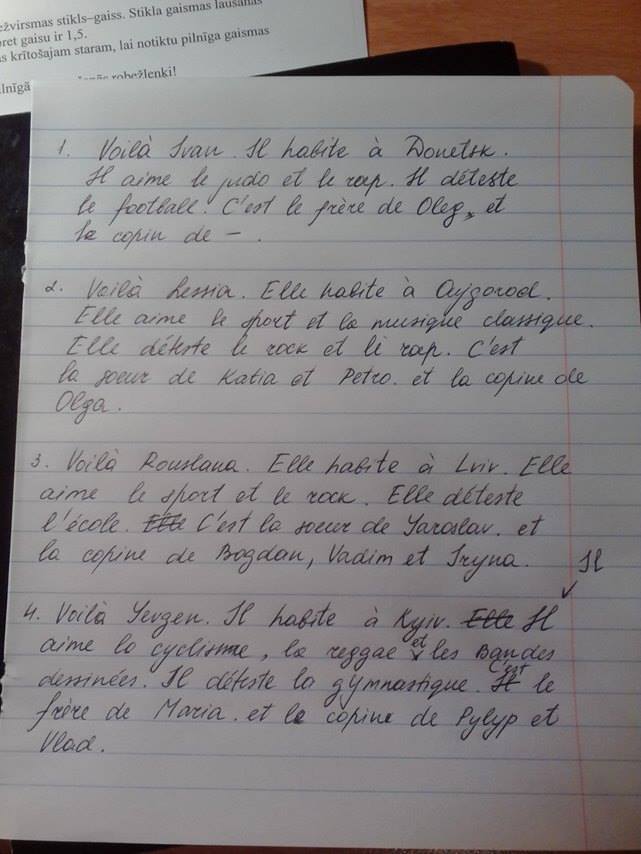 ežvirsmas stikls–gaiss. Stikla gaismas laušanas
pret gaisu ir 1,5.
s krītošajam staram, lai notiktu pilnīga gaismas
ilnīgā robežleņķi!
1. Voilà Ivan. Il habite à Donetsk.
Il aime le judo et le rap. Il déteste
le football. C'est le frère de Oleg, et
le copin de – .
2. Voilà Lessia. Elle habite à Oujgorod.
Elle aime le sport et la musique classique.
Elle déteste le rock et le rap. C'est
la soeur de Katia et Petro. et la copine de
Olga.
3. Voilà Rouslana. Elle habite à Lviv. Elle
aime le sport et le rock. Elle déteste
l'école. Elle C'est la soeur de Yaroslav. et
la copine de Bogdan, Vadim et Iryna.
Il
4. Voilà Yevgen. Il habite à Kyiv. Elle Il
aime la cyclisme, la reggae et les Bandes
dessinées. Il déteste la gymnastique. Il C'est le
frère de Maria. et le copine de Pylyp et
Vlad.